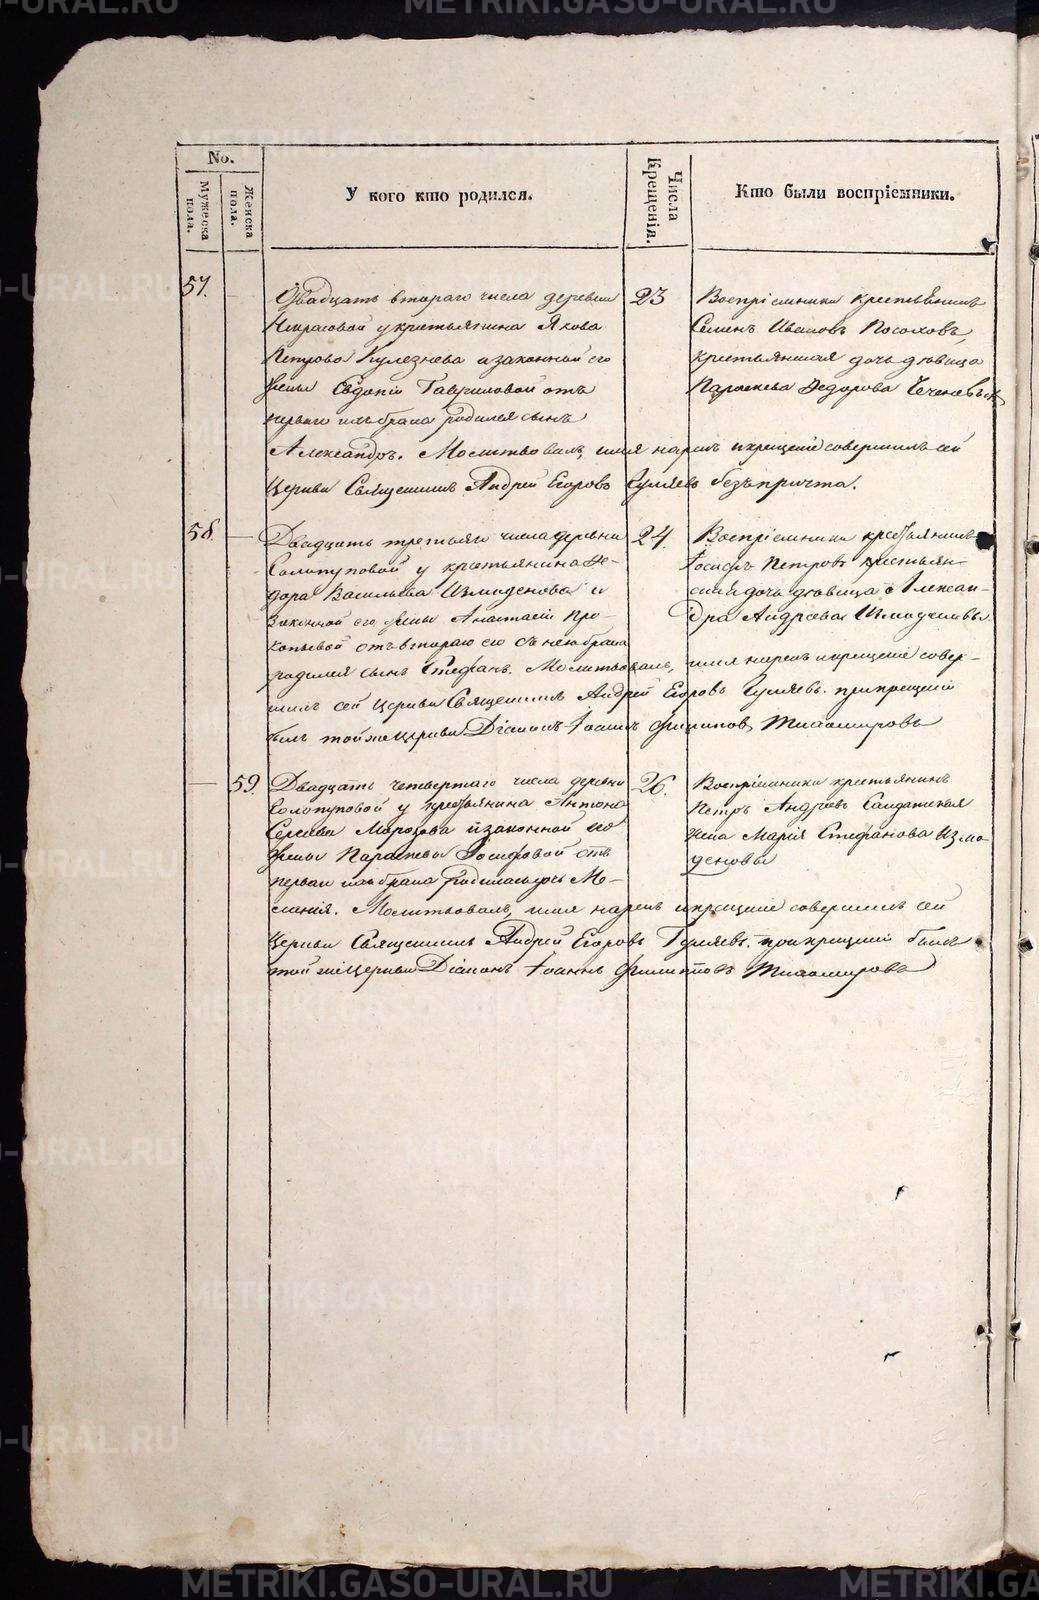 METRIKI.GASO-URAL.RU
No.
Мужеска пола.
Женска пола.
У кого кто родился.
Числа Крещенія.
Кто были воспріемники.
57.
Двадцать втораго числа деревни
Некрасовой у крестьянина Якова
Петрова Кулезнева и законной его
жены Евдокіи Гавриловой отъ
перваго ихъ брака родился сынъ
Александръ. Молитвовалъ, имя нарекъ и крещеніе совершилъ сей
Церкви Священникъ Андрей Егоровъ Гуляевъ безъ причта.
23
Воспріемники крестьянинъ
Семенъ Ивановъ Посоховъ,
крестьянская дочь девица
Параскева Федорова
58.
Двадцать третьяго числа деревни
Солопуповой у крестьянина Фе-
дора Васильева Измоденова и
законной его жены Анастасіи Про-
копьевой отъ втораго его съ нею брака
родился сынъ Стефанъ. Молитвовалъ, имя нарекъ и крещеніе совер-
шилъ сей Церкви Священникъ Андрей Егоровъ Гуляевъ. при крещеніи
былъ той же Церкви Діаконъ Іоаннъ Филиповъ Тихомировъ
24.
Воспріемники крестьянинъ
Іосифъ Петровъ крестьян-
ская дочь девица Алексан-
дра Андреева Измоденовы.
59.
Двадцать четвертаго числа деревни
Солопуповой у крестьянина Антона
Сергеева Морозова и законной его
жены Параскевы Іосифовой отъ
перваго ихъ брака родилась дочь Ме-
ланія. Молитвовалъ, имя нарекъ и крещеніе совершилъ сей
Церкви Священникъ Андрей Егоровъ Гуляевъ. при крещеніи былъ
той же Церкви Діаконъ Іоаннъ Филипповъ Тихомировъ
26.
Воспріемники крестьянинъ
Петръ Андреевъ Солдатская
жена Марія Стефанова Измо-
деновы